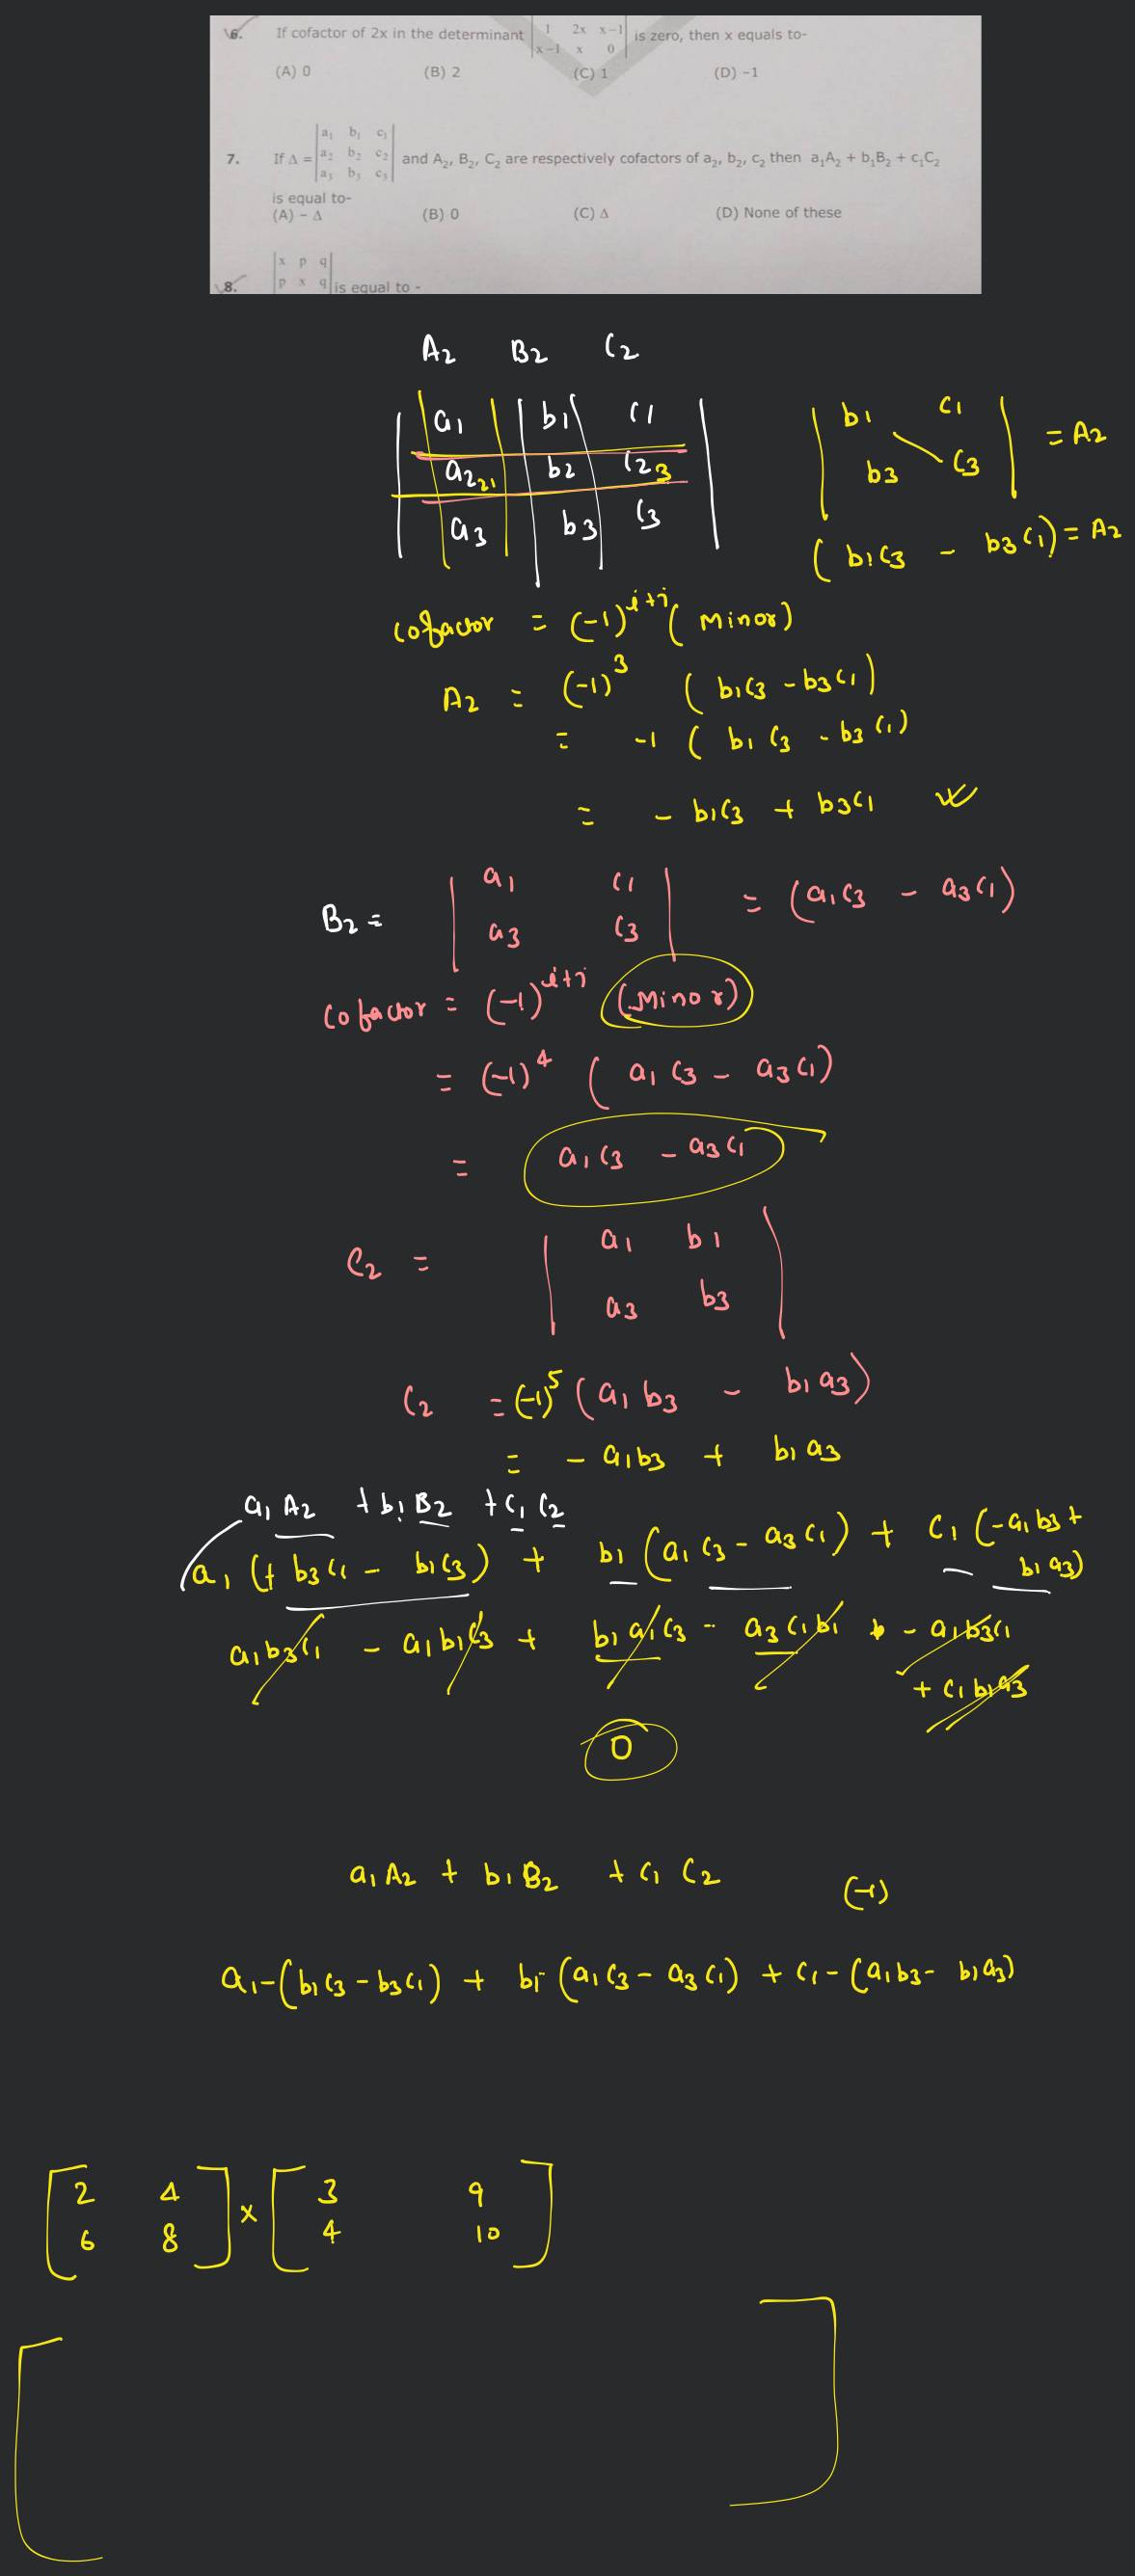 6. If cofactor of 2x in the determinant | 1 2x x-1 | is zero, then x equals to-
| x-1 x 0 |
(A) 0 (B) 2 (C) 1 (D) -1
| a₁ b₁ c₁ |
7. If Δ = | a₂ b₂ c₂ | and A₂, B₂, C₂ are respectively cofactors of a₂, b₂, c₂ then a₁A₂ + b₁B₂ + c₁C₂
| a₃ b₃ c₃ |
is equal to-
(A) - Δ (B) 0 (C) Δ (D) None of these
| x p q |
8. | p x q | is equal to -
A2 B2 C2
| a1 b1 c1 |
| a2 21 b2 c2 3 |
| a3 b3 c3 |
| b1 c1 | = A2
| b3 c3 |
(b1c3 - b3c1) = A2
cofactor = (-1)^i+j (Minor)
A2 = (-1)^3 (b1c3 - b3c1)
= -1 (b1c3 - b3c1)
= - b1c3 + b3c1
B2 = | a1 c1 | = (a1c3 - a3c1)
| a3 c3 |
cofactor = (-1)^i+j (Minor)
= (-1)^4 (a1c3 - a3c1)
= a1c3 - a3c1
C2 = | a1 b1 |
| a3 b3 |
C2 = (-1)^5 (a1b3 - b1a3)
= - a1b3 + b1a3
a1A2 + b1B2 + c1C2
a1 (+ b3c1 - b1c3) + b1 (a1c3 - a3c1) + c1 (-a1b3 +
b1a3)
a1b3c1 - a1b1c3 + b1a1c3 - a3c1b1 - a1b3c1
+ c1b1a3
0
a1A2 + b1B2 + c1C2 (-1)
a1-(b1c3-b3c1) + b1-(a1c3-a3c1) + c1-(a1b3-b1a3)
[ 2 4 ] x [ 3 9 ]
[ 6 8 ] [ 4 10 ]